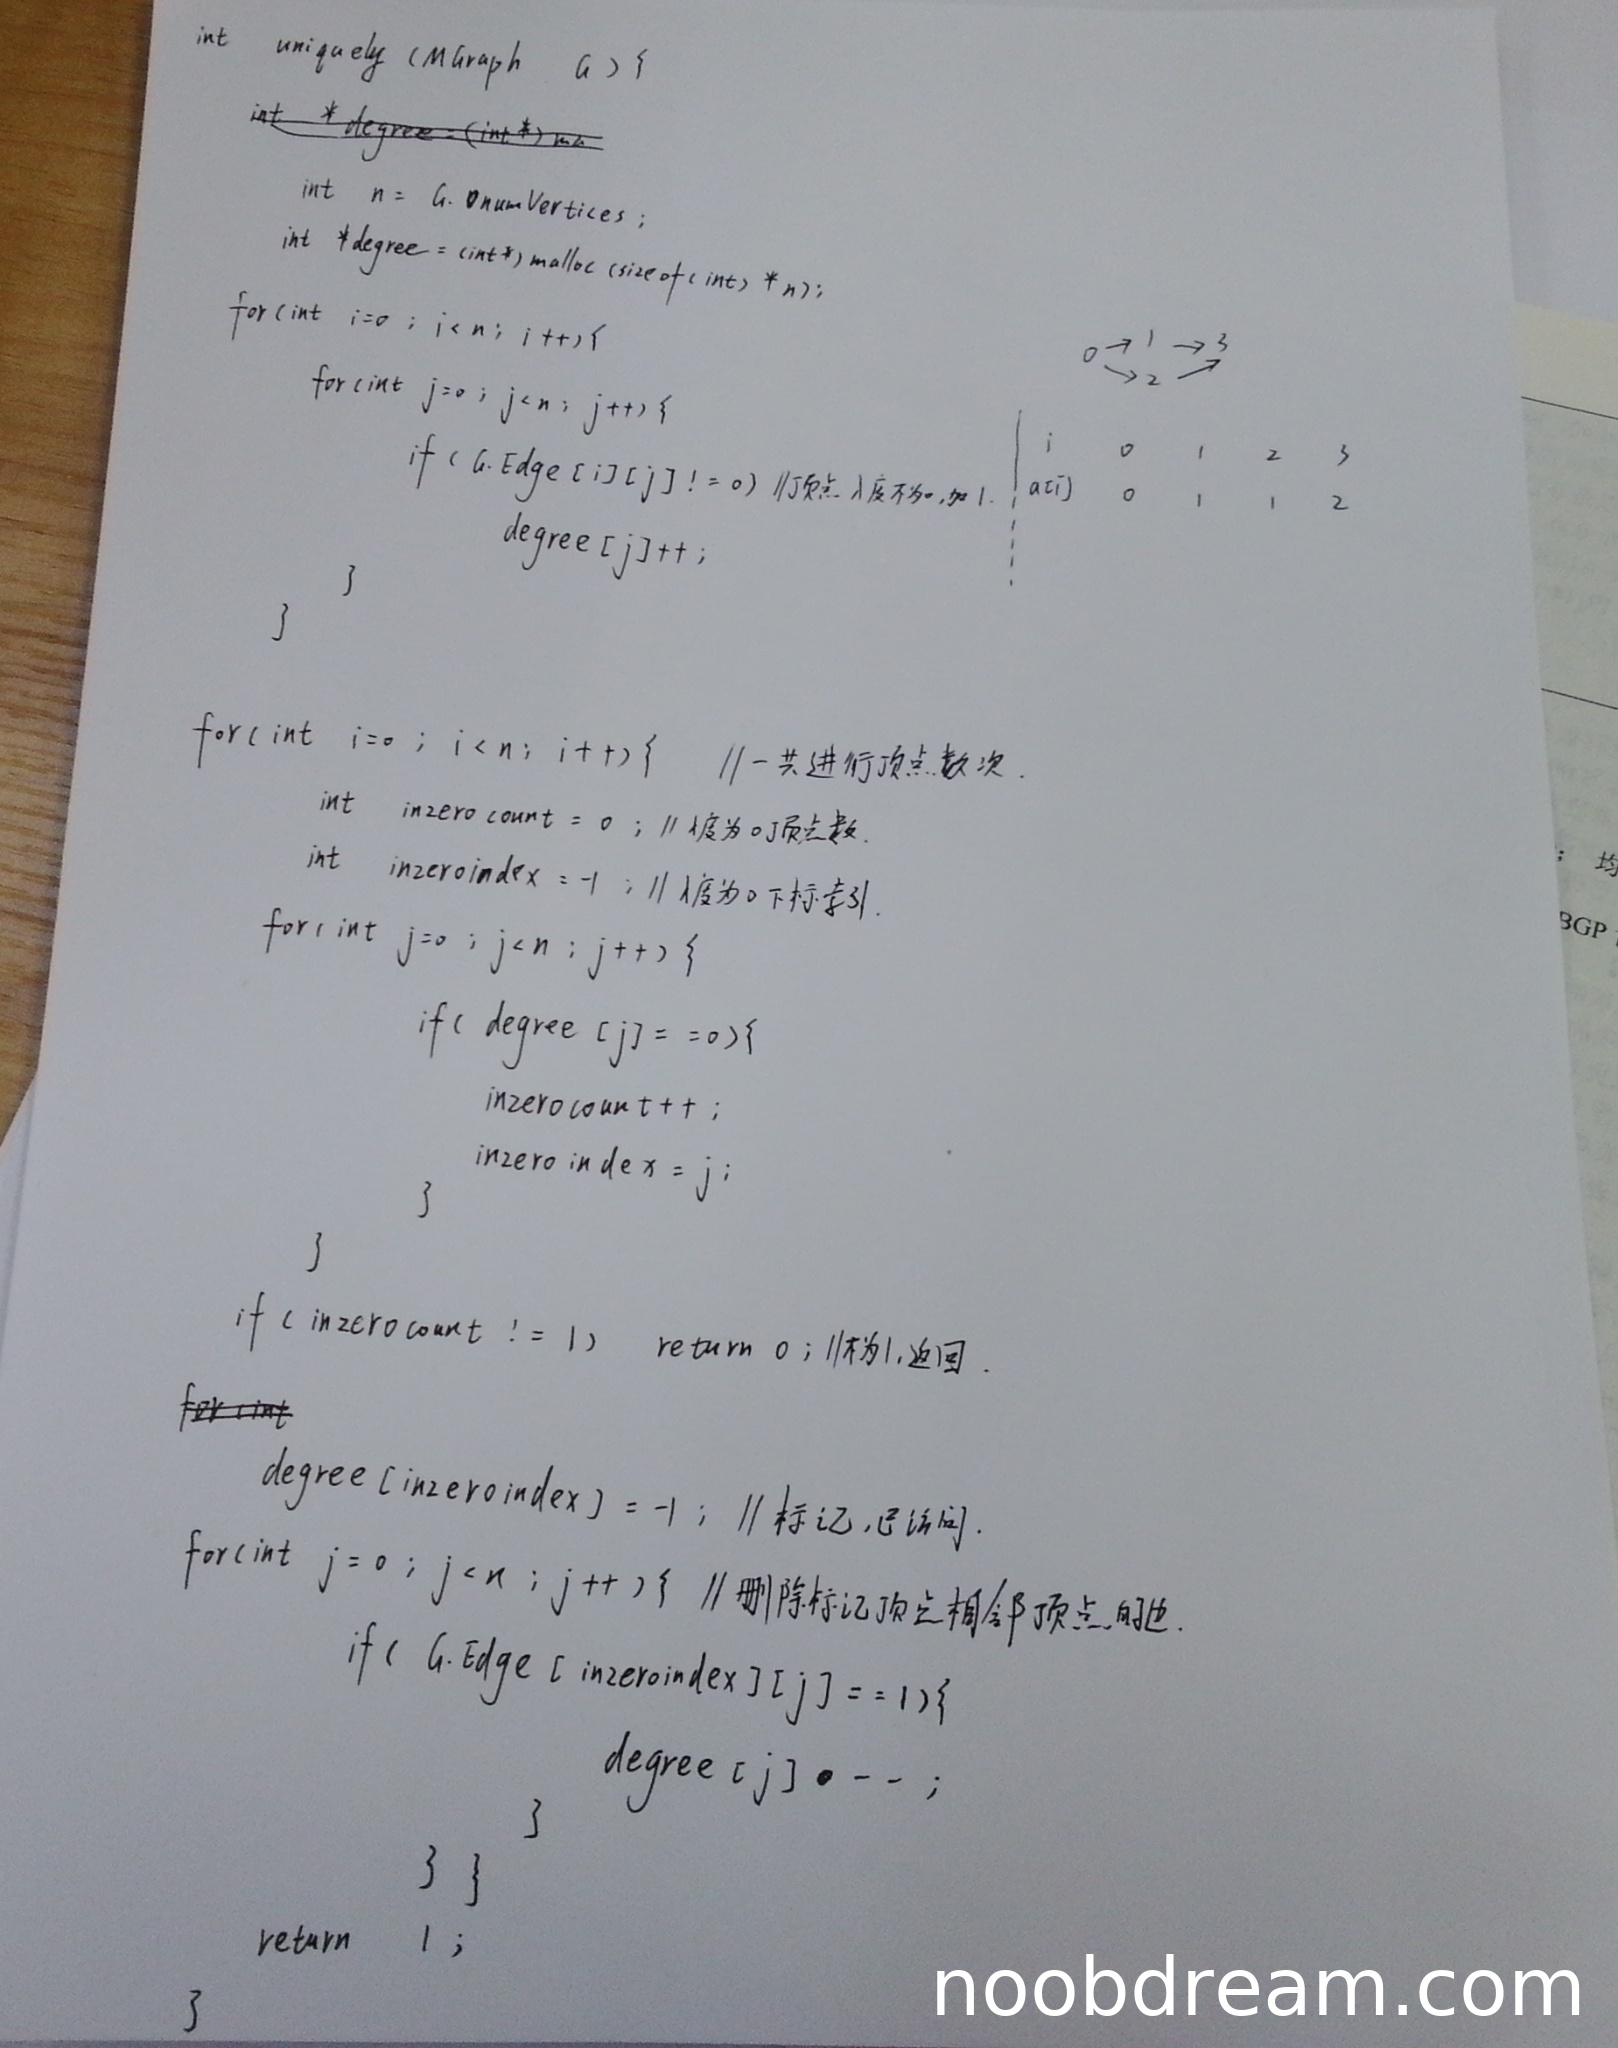 int uniquely (MGraph G) {
int * degree = (int*) ma
int n = G. numVertices ;
int *degree = (int*) malloc (sizeof(int) * n);
for(int i=0 ; i<n; i++){
for(int j=0 ; j<n; j++){
if ( G.Edge [i][j] != 0) //顶点入度不为0,加1.
degree [j]++ ;
}
}
0 → 1 → 3
→ 2 →
i 0 1 2 3
a[i] 0 1 1 2
for( int i=0 ; i<n; i++) { //一共进行顶点数次.
int inzerocount = 0 ; //入度为0顶点数.
int inzeroindex = -1 ; //入度为0下标索引.
for( int j=0 ; j<n ; j++) {
if( degree [j] ==0){
inzerocount++ ;
inzeroindex = j;
}
}
if ( inzerocount != 1) return 0 ; //不为1,返回.
for(int
degree [inzeroindex] = -1 ; //标记,已访问.
for(int j=0 ; j<n ; j++){ //删除标记顶点相邻顶点的边.
if( G.Edge [inzeroindex][j] ==1){
degree [j] -- ;
}
} }
return 1 ;
}
: 均
BGP
noobdream.com